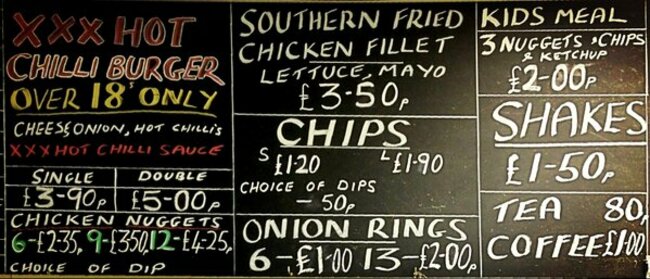 XXX HOT
CHILLI BURGER
OVER 18s ONLY
CHEESE & ONION, HOT CHILLI'S
XXX HOT CHILLI SAUCE
SINGLE DOUBLE
£3-90p £5-00p
CHICKEN NUGGETS
6-£2-35, 9-£3.50, 12-£4-25p
CHOICE OF DIP
SOUTHERN FRIED
CHICKEN FILLET
LETTUCE, MAYO
£3-50p
CHIPS
S £1-20 L £1-90
CHOICE OF DIPS
- 50p
ONION RINGS
6-£1-00 13-£2-00p
KIDS MEAL
3 NUGGETS, CHIPS
& KETCHUP
£2-00p
SHAKES
£1-50p
TEA 80p
COFFEE £1-00